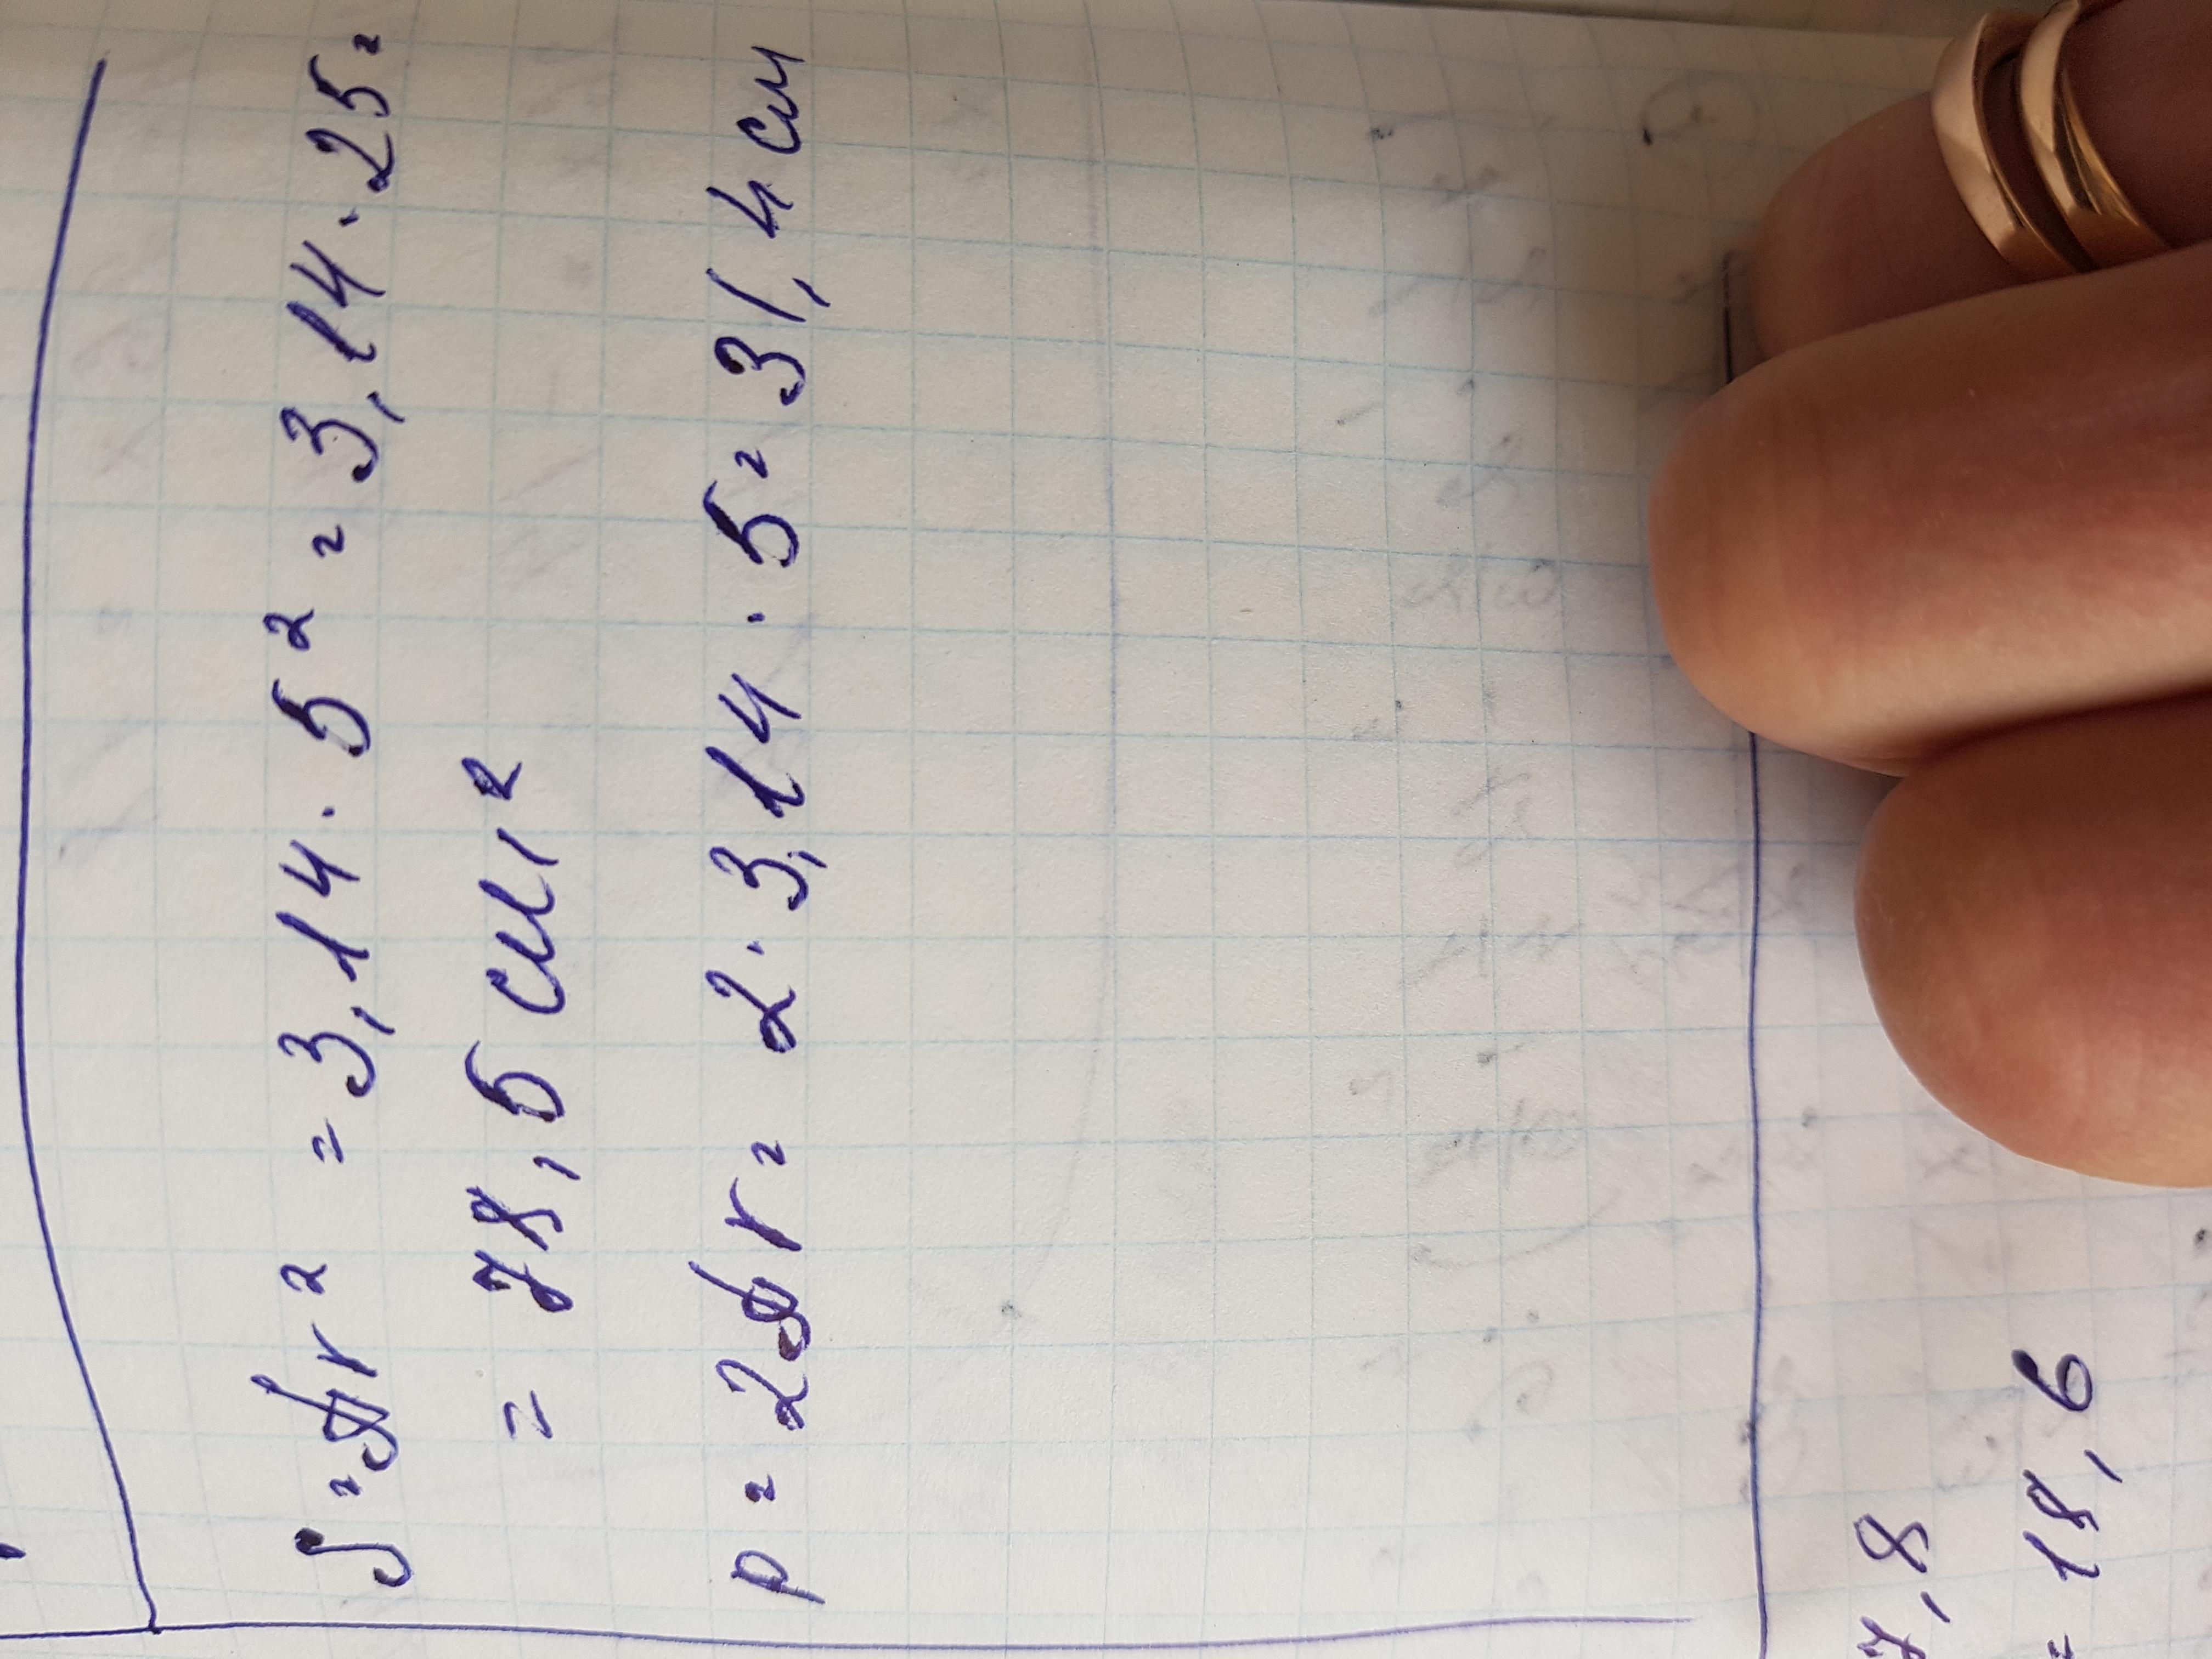 S = πr² = 3,14 · 5² = 3,14 · 25 =
= 78,5 см²
P = 2πr = 2 · 3,14 · 5 = 31,4 см
7,8
= 18,6